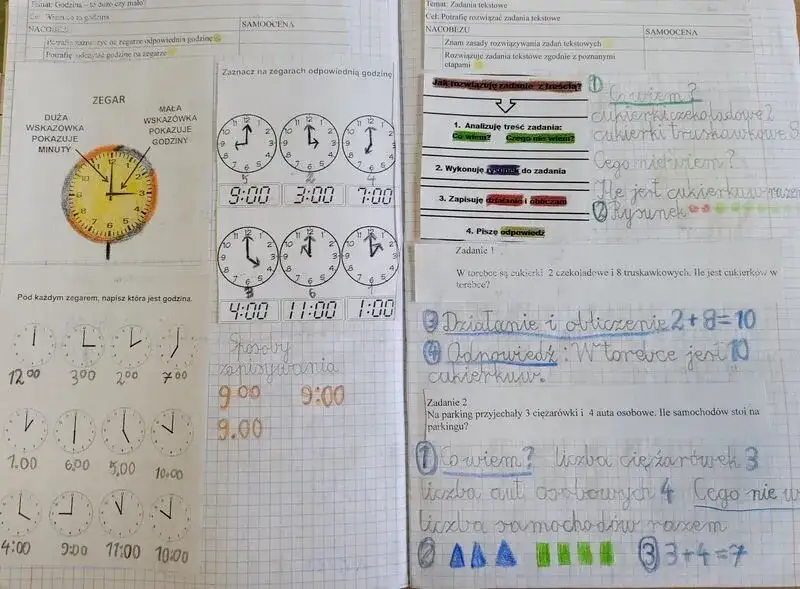 Temat: Godzina – to dużo czy mało?
NACOBEZU
SAMOOCENA
Potrafię zaznaczyć na zegarze odpowiednią godzinę
Potrafię odczytać godzinę na zegarze
ZEGAR
DUŻA
WSKAZÓWKA
POKAZUJE
MINUTY
MAŁA
WSKAZÓWKA
POKAZUJE
GODZINY
Pod każdym zegarem, napisz która jest godzina.
12 00
3 00
2 00
7 00
1.00
6,00
5,00
10.00
4:00
9:00
11:00
10:00
Zaznacz na zegarach odpowiednią godzinę
9:00
3:00
7:00
4:00
11:00
1:00
Sposoby
zapisywania
9 00
9:00
9.00
Temat: Zadania tekstowe
Cel: Potrafię rozwiązać zadania tekstowe
NACOBEZU
SAMOOCENA
Znam zasady rozwiązywania zadań tekstowych
Rozwiązuję zadania tekstowe zgodnie z poznanymi
etapami
Jak rozwiązuję zadanie z treścią?
1. Analizuję treść zadania:
Co wiem? Czego nie wiem?
2. Wykonuję rysunek do zadania
3. Zapisuję działanie i obliczam
4. Piszę odpowiedź
1 Co wiem?
cukierki czekoladowe 2
cukierki truskawkowe 8
Cego nie wiem?
Ile jest cukierkuw razem
2 Rysunek
Zadanie 1
W torebce są cukierki 2 czekoladowe i 8 truskawkowych. Ile jest cukierków w
torebce?
3 Działanie i obliczenie 2+8=10
4 Odpowiedź: W torebce jest 10
cukierkuw.
Zadanie 2
Na parking przyjechały 3 ciężarówki i 4 auta osobowe. Ile samochodów stoi na
parkingu?
1 Co wiem? liczba ciężarówek 3
liczba aut osobowych 4 Cego nie w
liczba samochodów razem
2
3 3+4=7